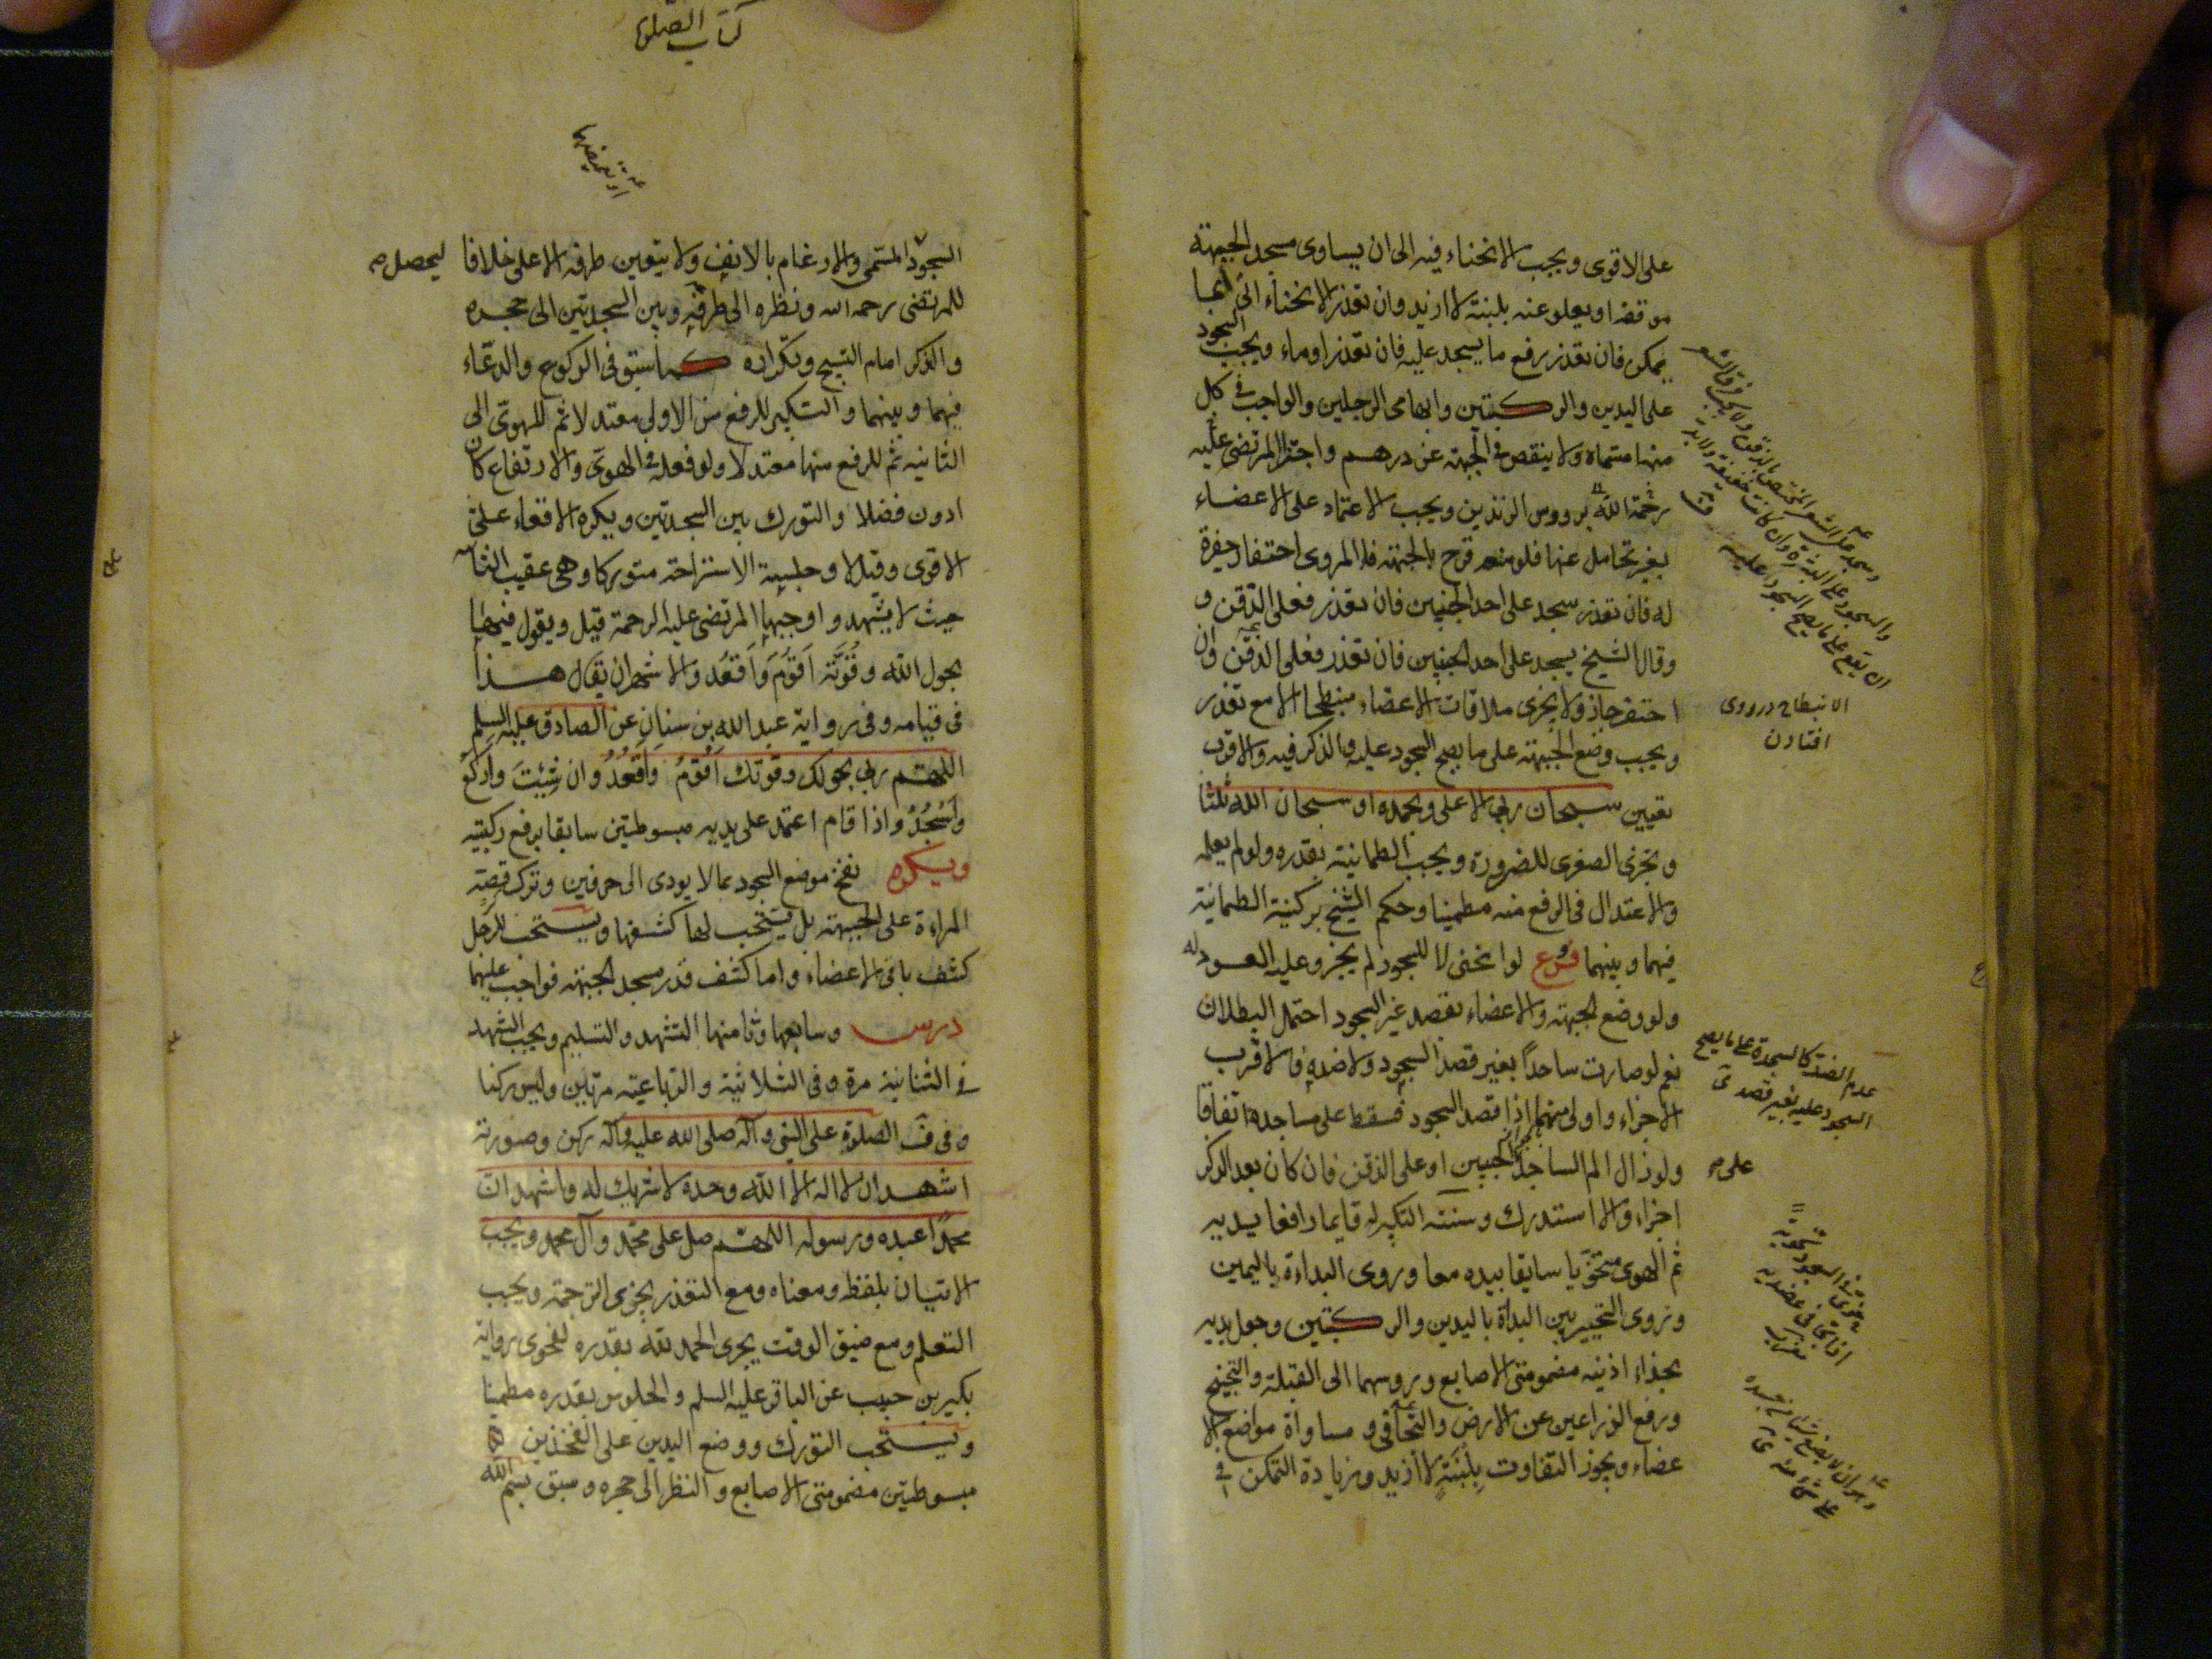 على الاقوى ويجب الانحناء فيه الى ان يساوى مسجد الجبهة
موقفه او يعلو عنه بلبنة لا ازيد وان تعذر الانحناء الى
يمكن فان تعذر رفع ما يسجد عليه فان تعذر اوماء ويجب السجود
على اليدين والركبتين وابهامى الرجلين والواجب فى كل
منها مسماه ولا ينقص فى الجبهة عن درهم واجتزا المرتضى عليه
رحمة الله برووس الزندين ويجب الاعتماد على الاعضاء
بغير تحامل عنها فلو منعه قرح بالجبهة فالمروى احتفار حفرة
له فان تعذر سجد على احد الجبينين فان تعذر فعلى الذقن و
وقال الشيخ يسجد على احد الجبينين فان تعذر فعلى الذقن وان
احتفر جاز ولا يجزى ملاقات الاعضاء منبطحا الا مع تعذر
ويجب وضع الجبهة على ما يصح السجود عليه والذكر فيه والاقرب
تعيين سبحان ربى الاعلى وبحمده او سبحان الله ثلثا
ويجزى الصغرى للضرورة ويجب الطمانينة بقدره ولو لم يعلمه
والاعتدال فى الرفع منه مطمينا وحكم الشيخ بركنية الطمانينة
فيهما وبينهما فرع لو انحنى لا للسجود لم يجز وعليه العود له
ولو وضع الجبهة والاعضاء بقصد غير السجود احتمل البطلان
نعم لو صارت ساجداً بغير قصد السجود ولا ضده فالاقرب
الاجزاء واولى منهما اذا قصد السجود فسقط على مساجده اتفاقا
ولو زال الم الساجد الجبين او على الذقن فان كان بعد الذكر
اجزاء والا استدرك وسننه التكبير له قايما رافعا يديه
ثم الهوى متخويا سابقا بيده معا وروى البداءة باليمين
وروى التخيير بين البداة باليدين والركبتين وجعل يديه
بحذاء اذنيه مضمومتى الاصابع وروسهما الى القبلة والتجنيح
ورفع الذراعين عن الارض والتجافى ومساواة مواضع الا
عضاء ويجوز التفاوت بلبنة لا ازيد وزيادة التمكن فى
الانبطاح در روى
افتادن
عدم الضد كالسجدة على ما يصح
السجود عليه بغير قصد
على
كتاب الصلوة
السجود المسمى والارغام بالانف ولا يتعين طرفه الاعلى خلافا
ليحصل
للمرتضى رحمه الله ونظره الى طرفه وبين السجدتين الى حجره
والذكر امام التسبيح وتكراره كما سبق فى الركوع والدعاء
فيهما وبينهما والتكبير للرفع من الاولى معتدلا ثم للهوى الى
الثانيه ثم للرفع منها معتدلا ولو فعله فى الهوى والارتفاع كان
ادون فضلا والتورك بين السجدتين ويكره الاقعاء على
الاقوى وقيل لا وجلسة الاستراحة متوركا وهى عقيب الثانيه
حيث لا يتشهد واوجبها المرتضى عليه الرحمة قيل ويقول فيها
بحول الله وقوته اقوم واقعد والاشهر ان يقال هذا
فى قيامه وفى رواية عبد الله بن سنان عن الصادق عليه السلم
اللهم ربى بحولك وقوتك اقوم واقعد وان شئت واركع
واسجد واذا قام اعتمد على يديه مبسوطتين سابقا برفع ركبتيه
ويكره نفخ موضع السجود بما لا يودى الى حرفين وترك قصة
المراءة على الجبهة بل يستحب لها كشفها ويستحب للرجل
كشف باقى الاعضاء واما كشف قدر مسجد الجبهة فواجب عليهما
درس وسابعها وثامنها التشهد والتسليم ويجب التشهد
فى الثنائية مرة وفى الثلاثية والرباعية مرتين وليس ركنا
وفى ف الصلوة على النبى وآله صلى الله عليه وآله ركن وصورته
اشهد ان لا اله الا الله وحده لا شريك له واشهد ان
محمدا عبده ورسوله اللهم صل على محمد وآل محمد ويجب
الاتيان بلفظه ومعناه ومع التعذر يجزى الترجمة ويجب
التعلم ومع ضيق الوقت يجزى الحمد لله بقدره لفحوى رواية
بكير بن حبيب عن الباقر عليه السلم والجلوس بقدره مطمينا
ويستحب التورك ووضع اليدين على الفخذين
مبسوطتين مضمومتى الاصابع والنظر الى حجره وسبق بسم الله